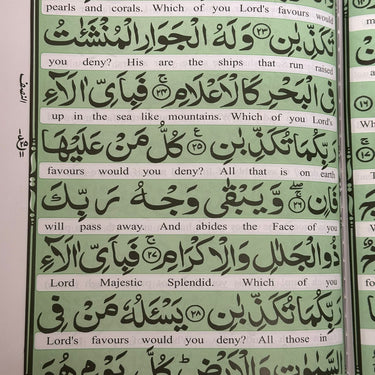 pearls and corals. Which of you Lord's favours would
تُكَذِّبٰنِ ﴿۲۳﴾ وَلَهُ الْجَوَارِ الْمُنْشَئٰتُ
you deny? His are the ships that run raised
فِي الْبَحْرِ كَالْاَعْلَامِ ﴿۲۴﴾ فَبِاَيِّ اٰلَآءِ
up in the sea like mountains. Which of you Lord's
رَبِّكُمَا تُكَذِّبٰنِ ﴿۲۵﴾ كُلُّ مَنْ عَلَيْهَا
favours would you deny? All that is on earth
فَانٍ ﴿۲۶﴾ وَّيَبْقٰى وَجْهُ رَبِّكَ
will pass away. And abides the Face of you
ذُو الْجَلٰلِ وَالْاِكْرَامِ ﴿۲۷﴾ فَبِاَيِّ اٰلَآءِ
Lord Majestic Splendid. Which of you
رَبِّكُمَا تُكَذِّبٰنِ ﴿۲۸﴾ يَسْئَلُهٗ مَنْ فِي
Lord's favours would you deny? All those in
السَّمٰوٰتِ وَالْاَرْضِ كُلَّ يَوْمٍ هُوَ